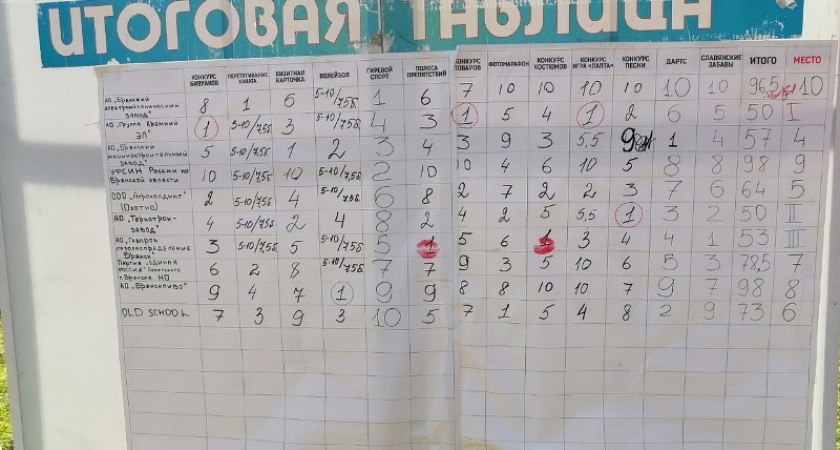 ИТОГОВАЯ ТАБЛИЦА
КОНКУРС БИВУАКОВ ПЕРЕТЯГИВАНИЕ КАНАТА ВИЗИТНАЯ КАРТОЧКА ВОЛЕЙБОЛ ГИРЕВОЙ СПОРТ ПОЛОСА ПРЕПЯТСТВИЙ КОНКУРС ПОВАРОВ ФОТОМАРАФОН КОНКУРС КОСТЮМОВ КОНКУРС ИГРА "ЛАПТА" КОНКУРС ПЕСНИ ДАРТС СЛАВЯНСКИЕ ЗАБАВЫ ИТОГО МЕСТО
АО "Брянский электромеханический завод" 8 1 6 5-10/7,5б. 1 6 7 10 10 10 10 10 10 96,5 10
АО "Группа Кремний ЭЛ" 1 5-10/7,5б. 3 5-10/7,5б. 4 3 1 5 4 1 2 6 5 50 I
АО "Брянский машиностроительный завод" 5 5-10/7,5б. 1 2 3 4 3 9 3 5,5 9 1 4 57 4
УФСИН России по Брянской области 10 5-10/7,5б. 10 5-10/7,5б. 2 10 10 4 6 10 5 8 8 98 9
ООО "Агрохолдинг" (Охотно) 2 5-10/7,5б. 4 5-10/7,5б. 6 8 2 7 2 2 3 7 6 64 5
АО "Термотрон-завод" 4 5-10/7,5б. 2 4 8 2 4 2 5 5,5 1 3 2 50 II
АО "Газпром газораспределение Брянск" 3 5-10/7,5б. 5 5-10/7,5б. 5 1 5 6 1 3 4 4 1 53 III
Партия "ЕДИНАЯ РОССИЯ" Советского г. Брянска МО 6 2 8 5-10/7,5б. 7 7 9 3 5 10 6 5 3 78,5 7
АО "Брянскпиво" 9 4 7 1 9 9 8 8 10 10 7 9 7 98 8
OLD SCHOOL 7 3 9 3 10 5 7 1 5 4 8 2 9 73 6